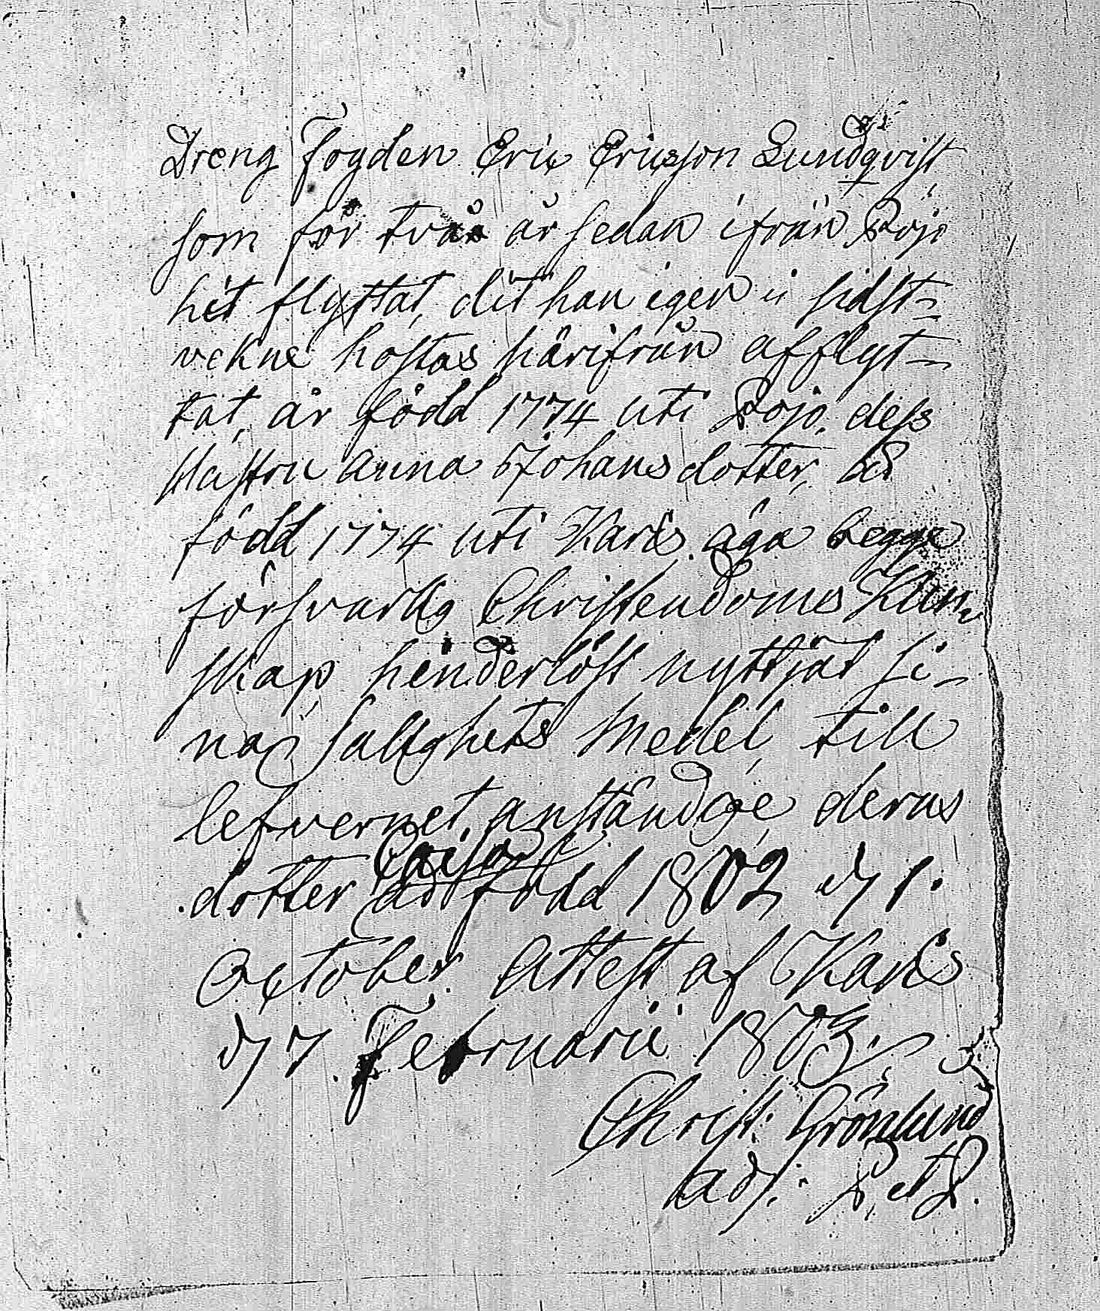 Dreng Fogden Eric Ericsson Lundqvist
som för två år sedan ifrån Pojo
hit flyttat, dit han igen i sidst-
vekne höstas härifrån afflyt-
tat, är född 1774 uti Pojo, dess
Hustru Anna Johansdotter, är
född 1774 uti Karis. äga begge
försvarlig Christendoms Kun-
skap, hinderlöst nyttjat si-
na salighets Medel, till
lefvernet anständige deras
dotter Caisa född 1802 d 1.
October. Attest af Karis
d 7. Februarii 1803.
Christ: Grönlund
adj: